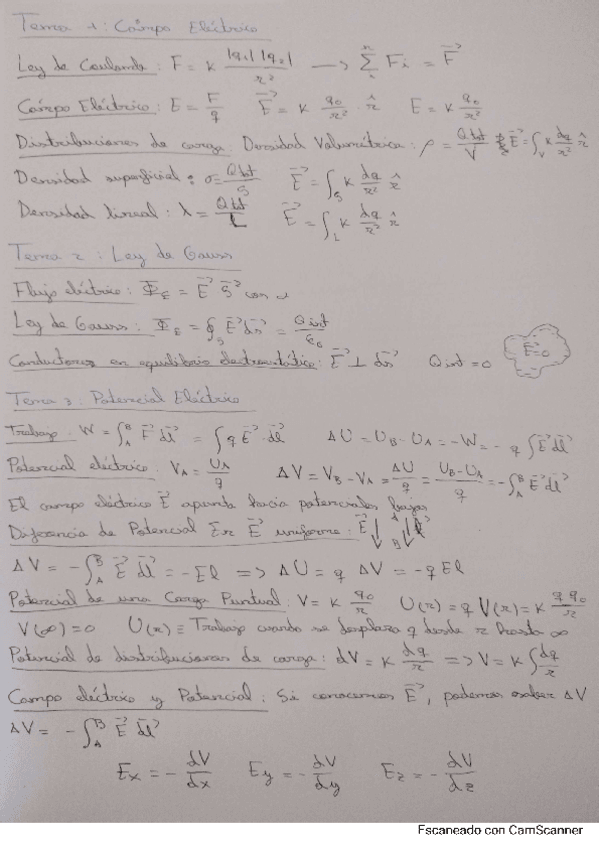 Tema 1: Campo Eléctrico
Ley de Coulomb: F = K |q₁| |q₂| / r² → Σᵢⁿ Fi = F⃗
Campo Eléctrico: E = F/q E⃗ = K q₀/r² · r̂ E = K q₀/r²
Distribuciones de carga: Densidad Volumétrica: ρ = Qtot/V E⃗ = ∫ᵥ K dq/r² r̂
Densidad superficial: σ = Qtot/S E⃗ = ∫ₛ K dq/r² r̂
Densidad lineal: λ = Qtot/L E⃗ = ∫_L K dq/r² r̂
Tema 2: Ley de Gauss
Flujo eléctrico: Φ_E = E⃗ S⃗ cos α
Ley de Gauss: Φ_E = ∮ₛ E⃗ ds⃗ = Qint/ε₀
Conductores en equilibrio electrostático: E⃗ ⊥ ds⃗ Qint = 0 E⃗=0
Tema 3: Potencial Eléctrico
Trabajo: W = ∫_A^B F⃗ dl⃗ = ∫ q E⃗ · dl⃗ ΔU = U_B - U_A = -W = -q ∫ E⃗ dl⃗
Potencial eléctrico: V_A = U_A/q ΔV = V_B - V_A = ΔU/q = (U_B - U_A)/q = -∫_A^B E⃗ dl⃗
El campo eléctrico E⃗ apunta hacia potenciales bajos
Diferencia de Potencial En E⃗ uniforme: E⃗ ↓ A ↓ B
ΔV = -∫_A^B E⃗ dl⃗ = -El => ΔU = q ΔV = -qEl
Potencial de una Carga Puntual: V = K q₀/r U(r) = q V(r) = K q q₀/r
V(∞) = 0 U(r) ≡ Trabajo cuando se desplaza q desde r hasta ∞
Potencial de distribuciones de carga: dV = K dq/r => V = K ∫ dq/r
Campo eléctrico y Potencial: Si conocemos E⃗, podemos saber ΔV
ΔV = -∫_A^B E⃗ dl⃗
Ex = - dV/dx Ey = - dV/dy Ez = - dV/dz
Escaneado con CamScanner